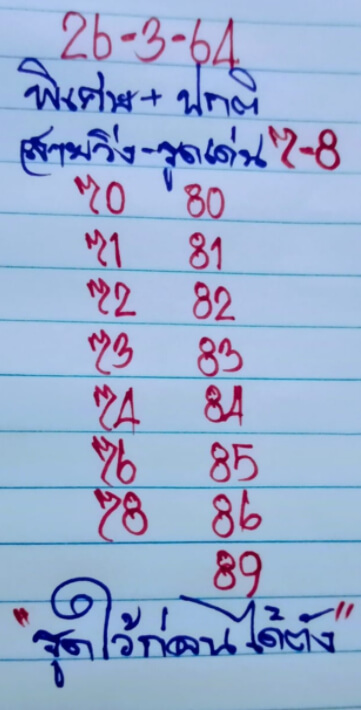 26-3-64
พิเศษ + ปกติ
สายวิ่ง-รูดเด่น 7-8
70 80
71 81
72 82
73 83
74 84
76 85
78 86
89
"รูดไว้ก่อนได้ตัง"